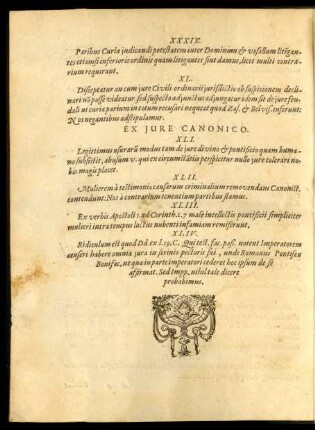 XXXIX.
Paribus Curiæ judicandi potestatem inter Dominum & vasallum litigan-
tes etiamsi inferioris ordinis quam litigantes sint damus, licet multi contra-
rium requirant.
XL.
Disceptatur an cum jure Civili ordinarii jurisdictio ob suspitionem decli-
nari nō possit videatur sed suspecto adjunctus adjungatur idem sit de jure feu-
dali ut curia parium in totum recusari nequeat quod Zas. & Belvis. inferunt:
Nos negantibus adstipulamur.
EX JURE CANONICO.
XLI.
Legitimus usurarū modus tam de jure divino & pontificio quam huma-
no subsistit, abusum v. qui ex circumstātiis perspicitur nullo jure tolerari no-
bis magis placet.
XLII.
Mulierem à testimonio causarum criminalium removendam Canonist.
contendunt: Nos à contrarium tenentium partibus stamus.
XLIII.
Ex verbis Apostoli 1. ad Corinth. c. 7 male intellectis pontificii simpliciter
mulieri intra tempus luctus nubenti infamiam remiserunt.
XLIV.
Ridiculum est quod Dd. ex l. 19. C. Qui test. fac. poss. notent Imperatorem
censeri habere omnia jura in scrinio pectoris sui, unde Romanus Pontifex
Bonifac. ne qua in parte imperatori cederet hoc ipsum de se
affirmat. Sed Impp. nihil tale dicere
probabimus.